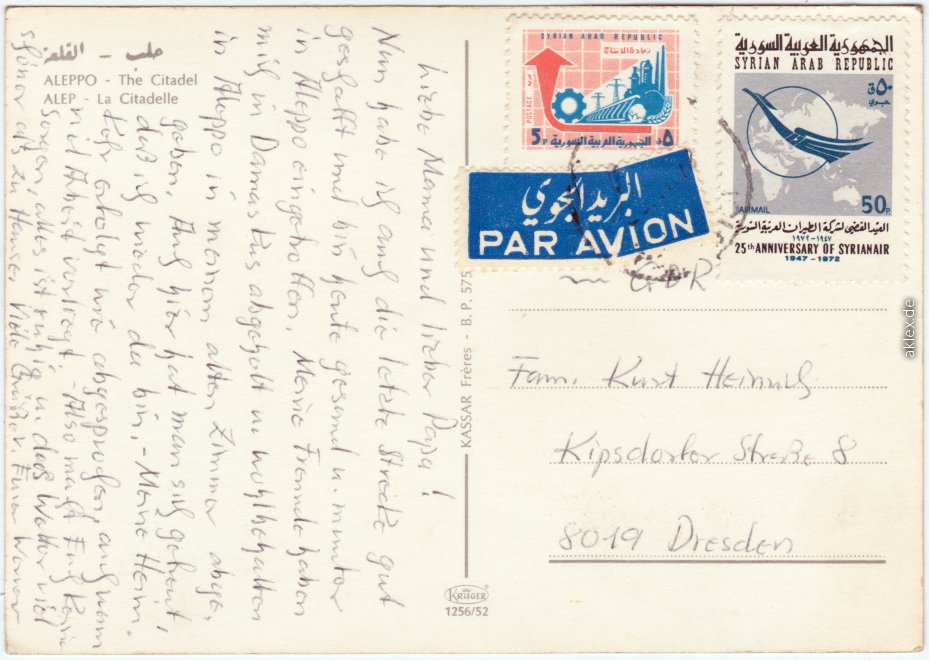 حلب - القلعة
ALEPPO - The Citadel
ALEP - La Citadelle
Liebe Mama und lieber Papa!
Nun habe ich auch die letzte Strecke gut
geschafft und bin heute gesund u. munter
in Aleppo eingetroffen. Meine Freunde haben
mich in Damaskus abgeholt u. wohlbehalten
in Aleppo in meinem alten Zimmer abge-
geben. Auch hier hat man sich gefreut,
daß ich wieder da bin. - Meine Heim-
kehr erfolgt wie abgesprochen, auch wenn
sich Achei vertragt. - Also macht Euch keine
Sorgen, alles ist ruhig u. das Wetter viel
schöner als zu Hause. Viele Grüße Euer Werner
KASSAR Frères - B. P. 575
KRÜGER
1256/52
SYRIAN ARAB REPUBLIC
زيادة الانتاج
POSTAGE
5P
٥ ق
الجمهورية العربية السورية
الجمهورية العربية السورية
SYRIAN ARAB REPUBLIC
٥٠ ق
جوي
AIRMAIL
50P
العيد الفضي لشركة الطيران العربية السورية
١٩٤٧-١٩٧٢
25th ANNIVERSARY OF SYRIANAIR
1947-1972
البريد الجوي
PAR AVION
GDR
Fam. Kurt Heinrich
Kipsdorfer Straße 8
8019 Dresden
aklex.de